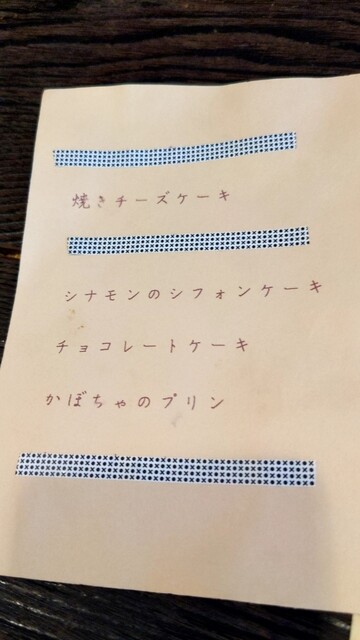 焼きチーズケーキ
シナモンのシフォンケーキ
チョコレートケーキ
かぼちゃのプリン